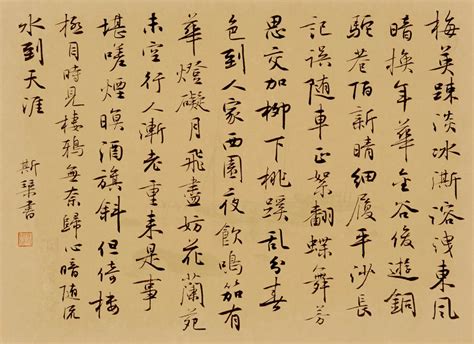 梅英疎淡冰澌溶洩東風
暗換年華金谷俊遊銅
駝巷陌新晴細履平沙長
記誤随車正絮翻蝶舞芳
思交加柳下桃蹊亂分春
色到人家西園夜飲鳴笳有
華燈礙月飛蓋妨花蘭苑
未空行人漸老重來是事
堪嗟煙暝酒旗斜但倚樓
極目時見棲鴉無奈歸心暗随流
水到天涯
斯琹書